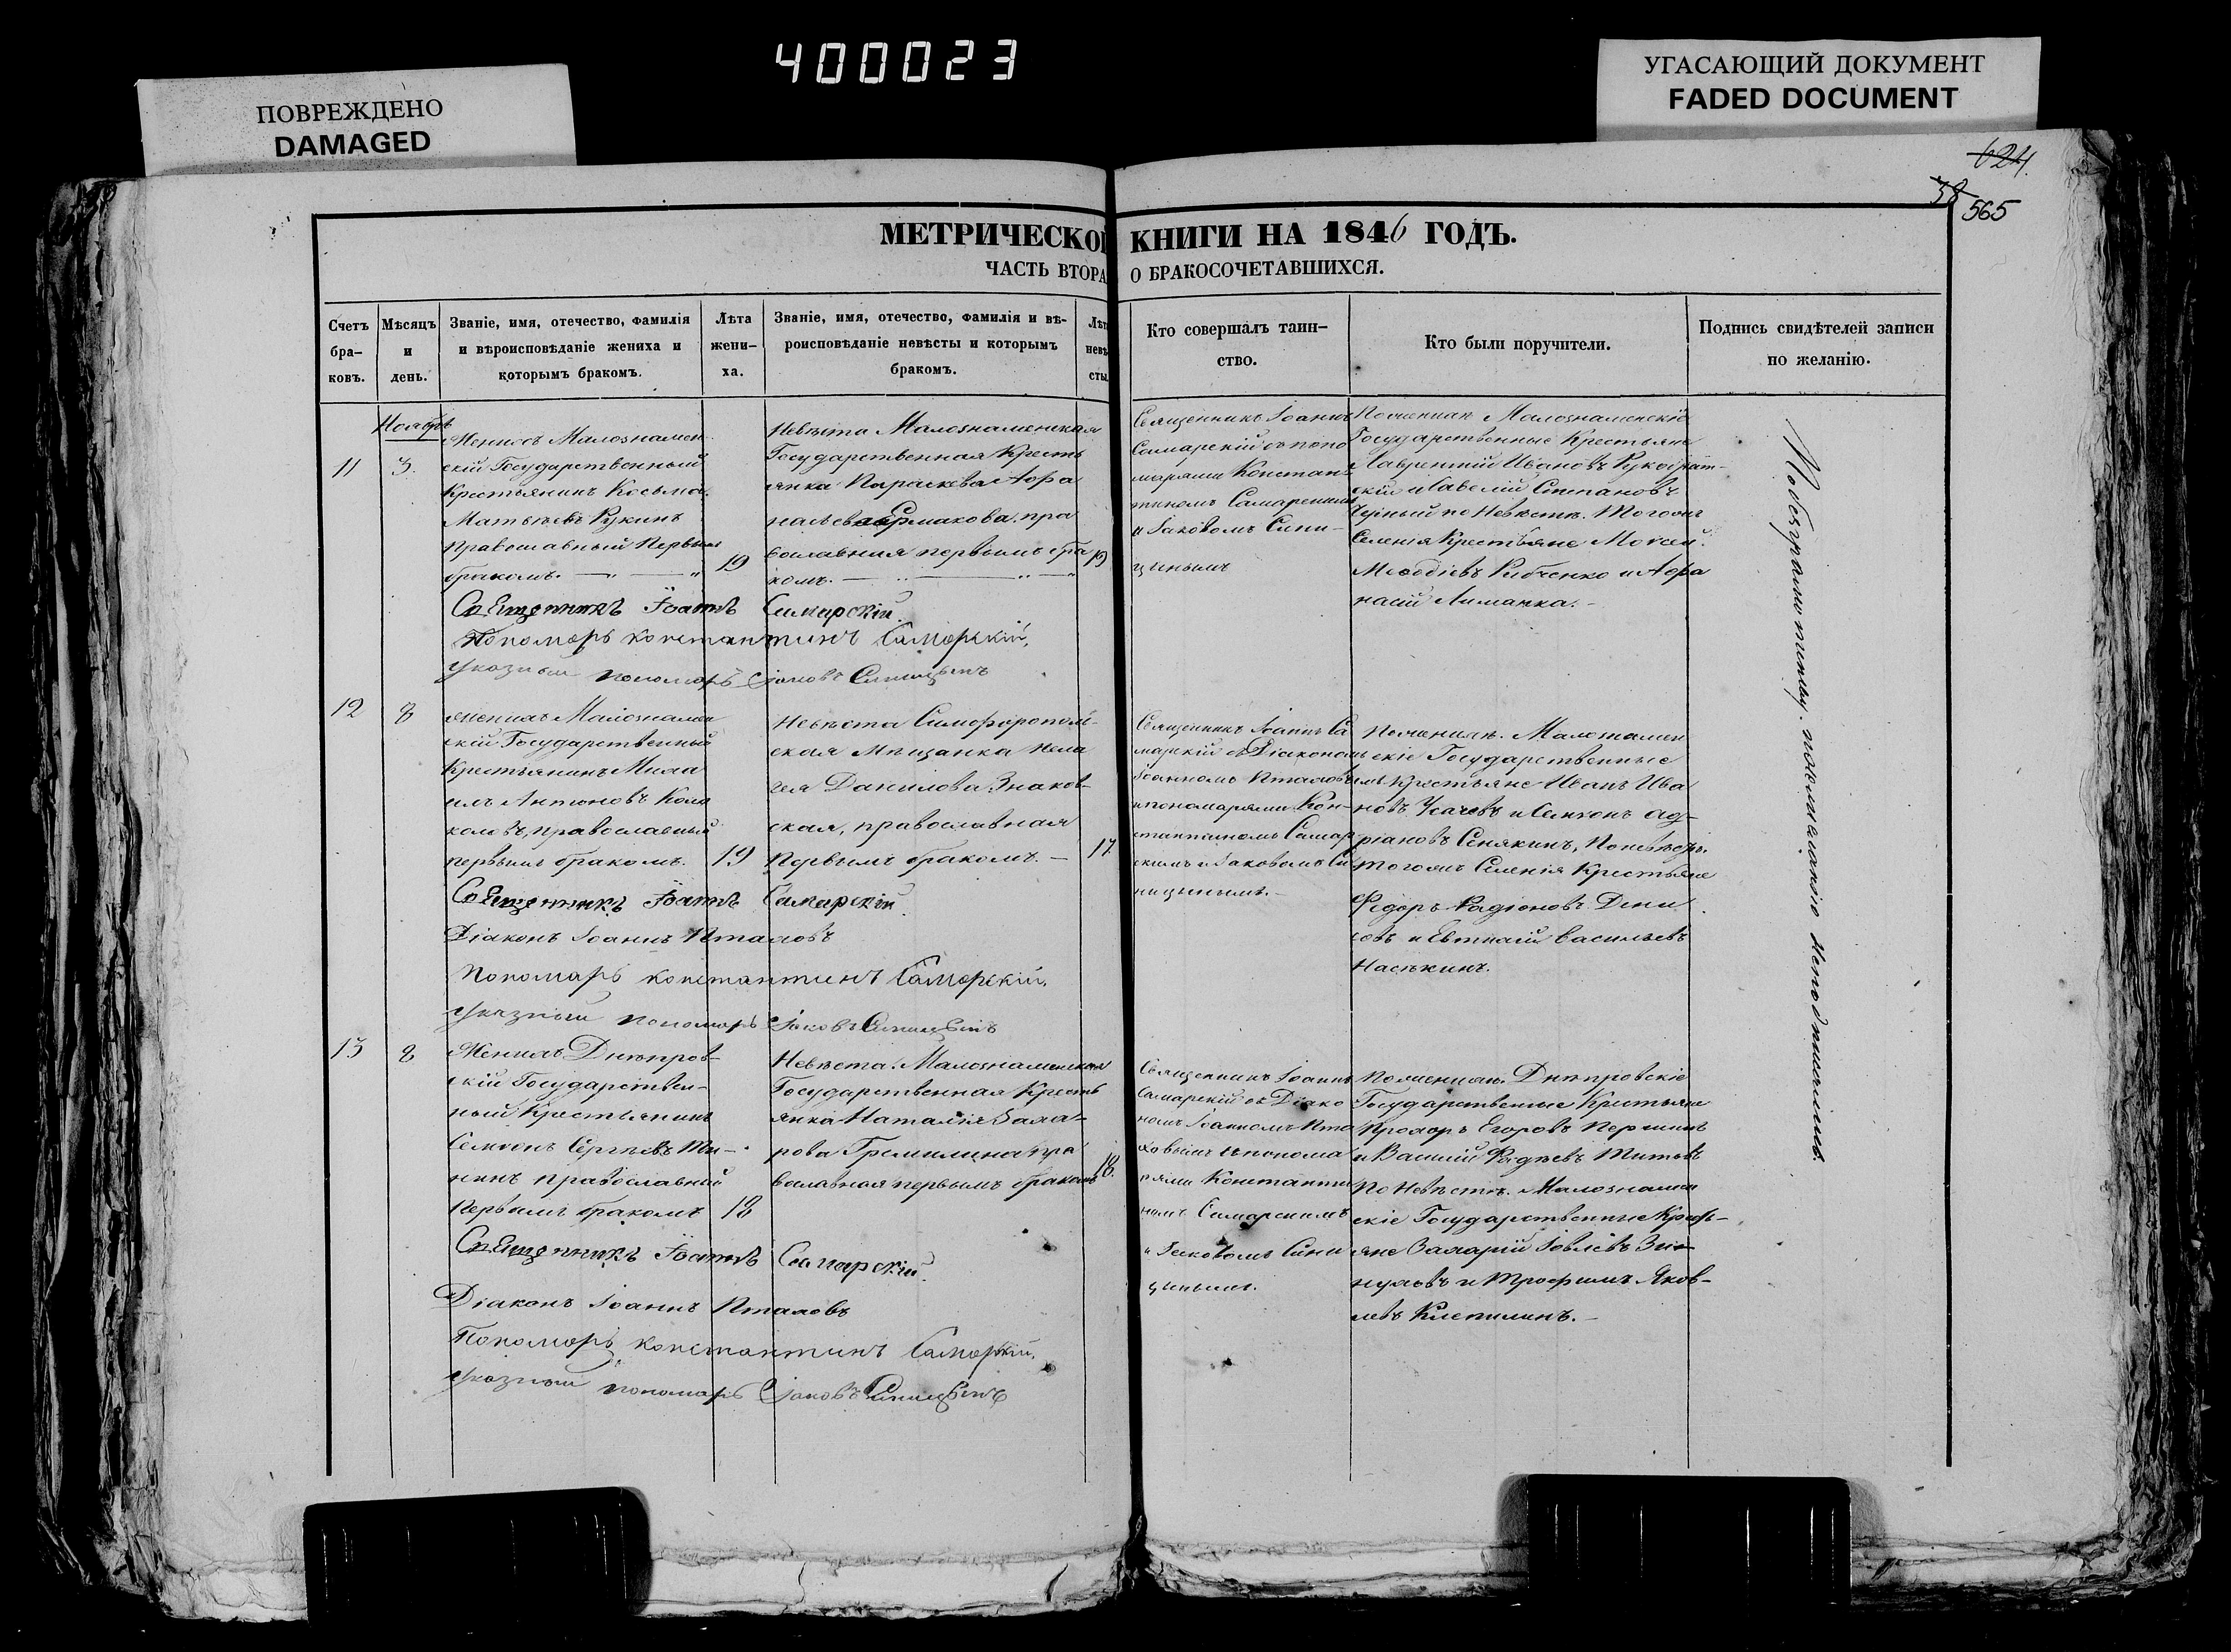 400023
ПОВРЕЖДЕНО
DAMAGED
УГАСАЮЩИЙ ДОКУМЕНТ
FADED DOCUMENT
624.
38
565
МЕТРИЧЕСКОЙ КНИГИ НА 1846 ГОДЪ.
ЧАСТЬ ВТОРА О БРАКОСОЧЕТАВШИХСЯ.
Счетъ
бра-
ковъ.
Мѣсяцъ
и
день.
Званіе, имя, отечество, фамилія
и вѣроисповѣданіе жениха и
которымъ бракомъ.
Лѣта
жени-
ха.
Званіе, имя, отечество, фамилія и вѣ-
роисповѣданіе невѣсты и которымъ
бракомъ.
Лѣта
невѣ
сты.
Кто совершалъ таин-
ство.
Кто были поручители.
Подпись свидѣтелей записи
по желанію.
Ноябрь
11
3.
Женихъ Малознамен
скій Государственный
Крестьянинъ Косьма
Матвѣевъ Рукинъ
Православный Первымъ
бракомъ.
19
Невѣста Малознаменская
Государственная Кресть
янка Параскева Афа
насьева Ермакова, пра
вославная первымъ бра
комъ.
19
Священникъ Іоаннъ
Самарскій съ поно
марями Констан
тиномъ Самарскимъ
и Іаковомъ Сини-
цынымъ
По женихѣ Малознаменскіе
Государственные Крестьяне
Лаврентій Ивановъ
и Савелій Степановъ
по Невѣстѣ. Тогожъ
Селенія Крестьяне Моѵсей
Меѳодіевъ Рибченко и Афа
насій Лиманка.
Священникъ Іоаннъ Самарскій
Пономарь Константинъ Самарскій,
Указный пономарь Іаковъ Синицынъ
12
8
Женихъ Малознамен
скій Государственный
Крестьянинъ Миха
илъ Антоновъ
православный
первымъ бракомъ.
19
Невѣста Симферополь-
ская Мѣщанка Пела
гея Данилова Знаков-
ская, православная
Первымъ бракомъ.
17.
Священникъ Іоаннъ Са
марскій съ Діакономъ
Іоанномъ Птаховымъ
и пономарями Кон-
стантиномъ Самар
скимъ и Іаковомъ Си
ницынымъ.
По женихѣ. Малознамен
скіе Государственные
Крестьяне Иванъ Ива
новъ Усачевъ и Семѵонъ Ад-
ріановъ Сенякинъ, По невѣстѣ.
тогожъ Селенія Крестьяне
Федоръ Радіоновъ Дени
совъ и Евтихій Васильевъ
Насѣкинъ.
Священникъ Іоаннъ Самарскій
Діаконъ Іоаннъ Птаховъ
Пономарь Константинъ Самарскій.
Указный пономарь Іаковъ Синицынъ
13
8
Женихъ Днѣпров-
скій Государствен-
ный Крестьянинъ
Семѵонъ Сергѣевъ
православный
Первымъ бракомъ
18
Невѣста. Малознаменская
Государственная Кресть
янка Наталія Заха-
рова Гремилина пра
вославная первымъ бракомъ
18.
Священникъ Іоаннъ
Самарскій съ Діако
номъ Іоанномъ Пта
ховымъ съ понома
рями Константи
номъ Самарскимъ
и Іаковомъ Сини
цынымъ.
По женихѣ. Днѣпровскіе
Государственные Крестьяне
Прохоръ Егоровъ Першинъ
и Василій Фадѣевъ Титовъ
По Невѣстѣ. Малознамен
скіе Государственные Кресть-
яне Захарій Іовлевъ
и Трофимъ Яков-
левъ Клепилинъ.
Священникъ Іоаннъ Самарскій
Діаконъ Іоаннъ Птаховъ
Пономарь Константинъ Самарскій.
Указный пономарь Іаковъ Синицынъ
По безграмотству. поженанію неподписались.